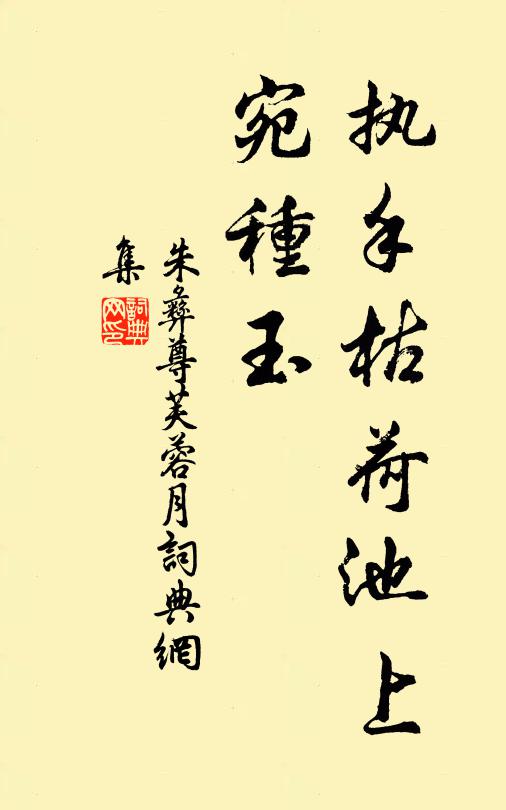 执手枯荷池上
宛種玉
朱彝尊芙蓉月詞典網
集
詞典
网印